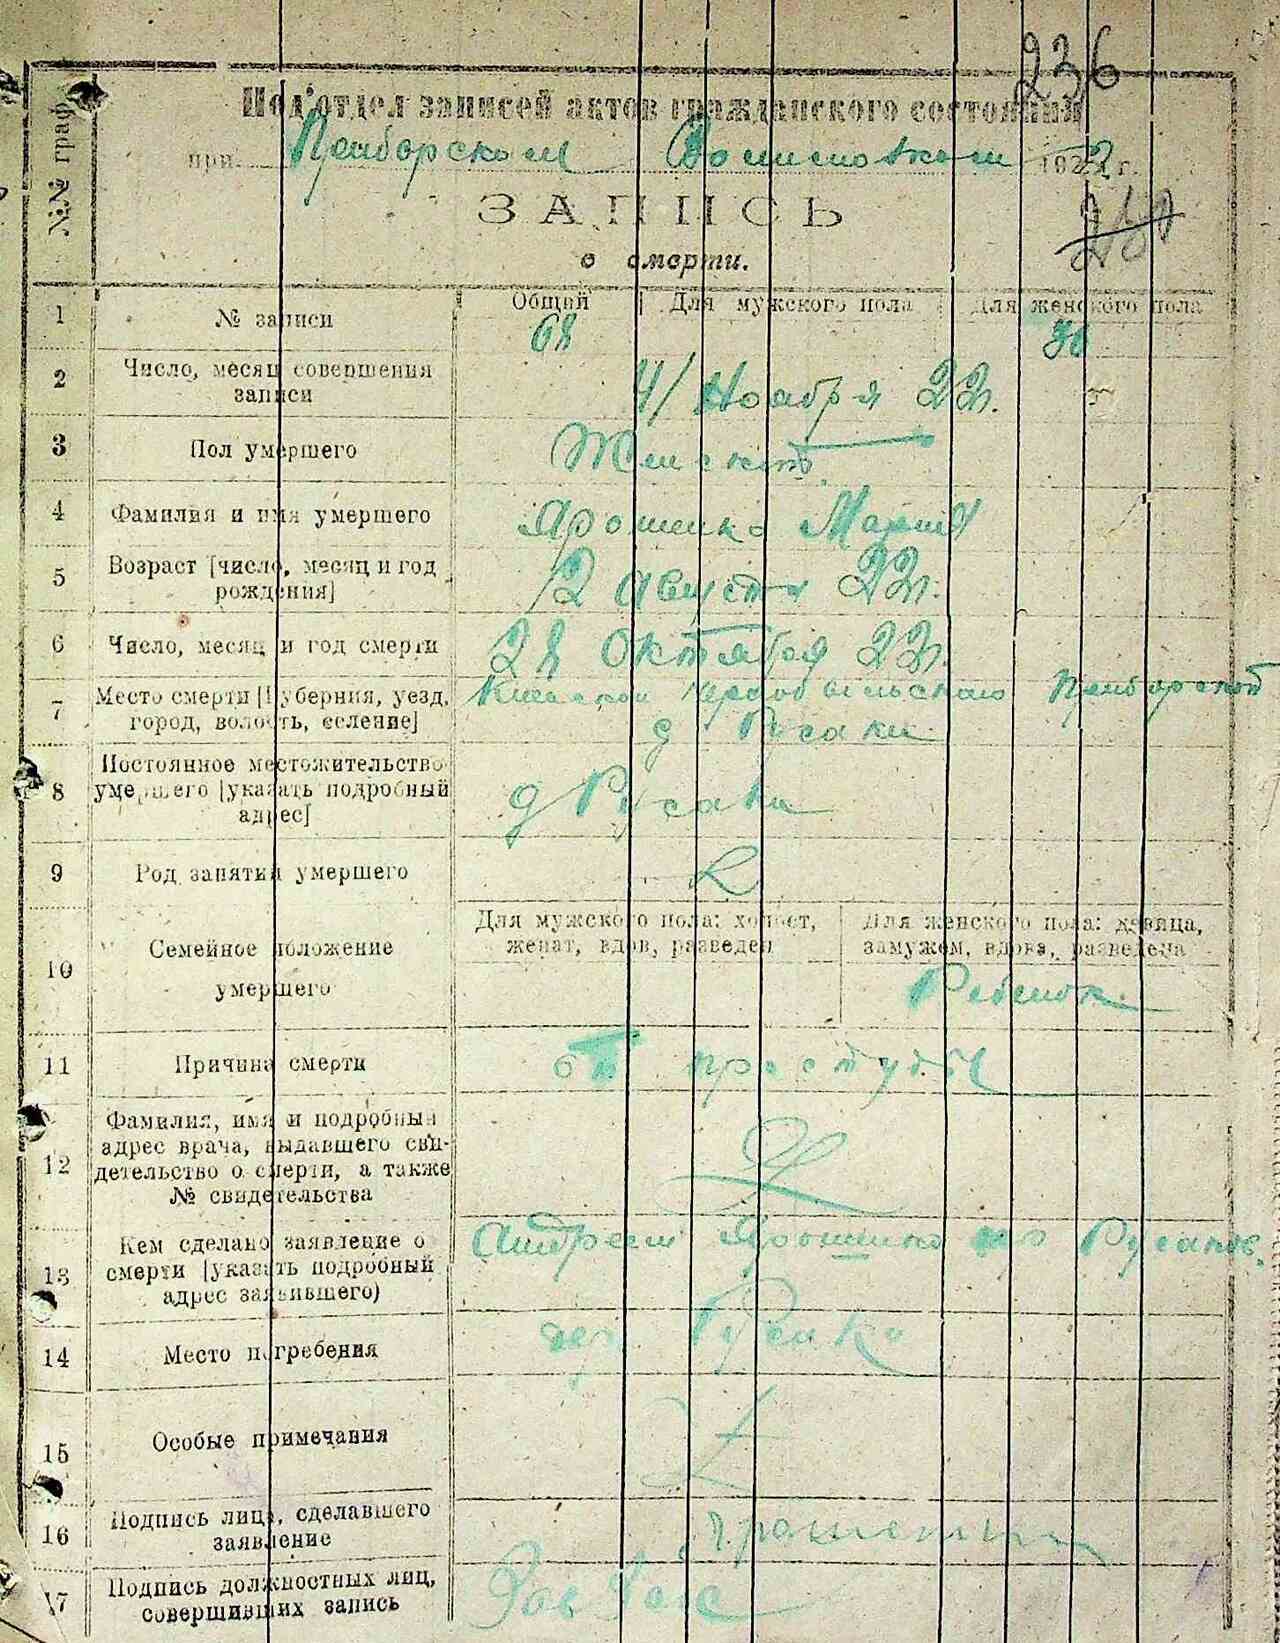 236
Подотдел записей актов гражданского состояния
при Приборском 1922 г.
ЗАПИСЬ
о смерти.
№№ граф
Общий | Для мужского пола | Для женского пола
1 № записи 68 30
2 Число, месяц совершения
записи 4/ Ноября 22г.
3 Пол умершего Женский
4 Фамилия и имя умершего Ярошенко Мария
5 Возраст [число, месяц и год
рождения] 12 Августа 22г.
6 Число, месяц и год смерти 28 Октября 22г.
7 Место смерти [Губерния, уезд, Киевской Чернобыльского Приборской
город, волость, селение] д Русаки
8 Постоянное местожительство
умершего [указать подробный д Русаки
адрес]
9 Род занятий умершего
10 Семейное положение
умершего
Для мужского пола: холост,
женат, вдов, разведен
Для женского пола: девица,
замужем, вдова, разведена
Ребенок
11 Причина смерти от простуды
12 Фамилия, имя и подробный
адрес врача, выдавшего сви-
детельство о смерти, а также
№ свидетельства
13 Кем сделано заявление о Андреем Ярошенко из Русаков.
смерти [указать подробный
адрес заявившего)
14 Место погребения дер Русаки
15 Особые примечания
16 Подпись лица, сделавшего
заявление
17 Подпись должностных лиц,
совершивших запись